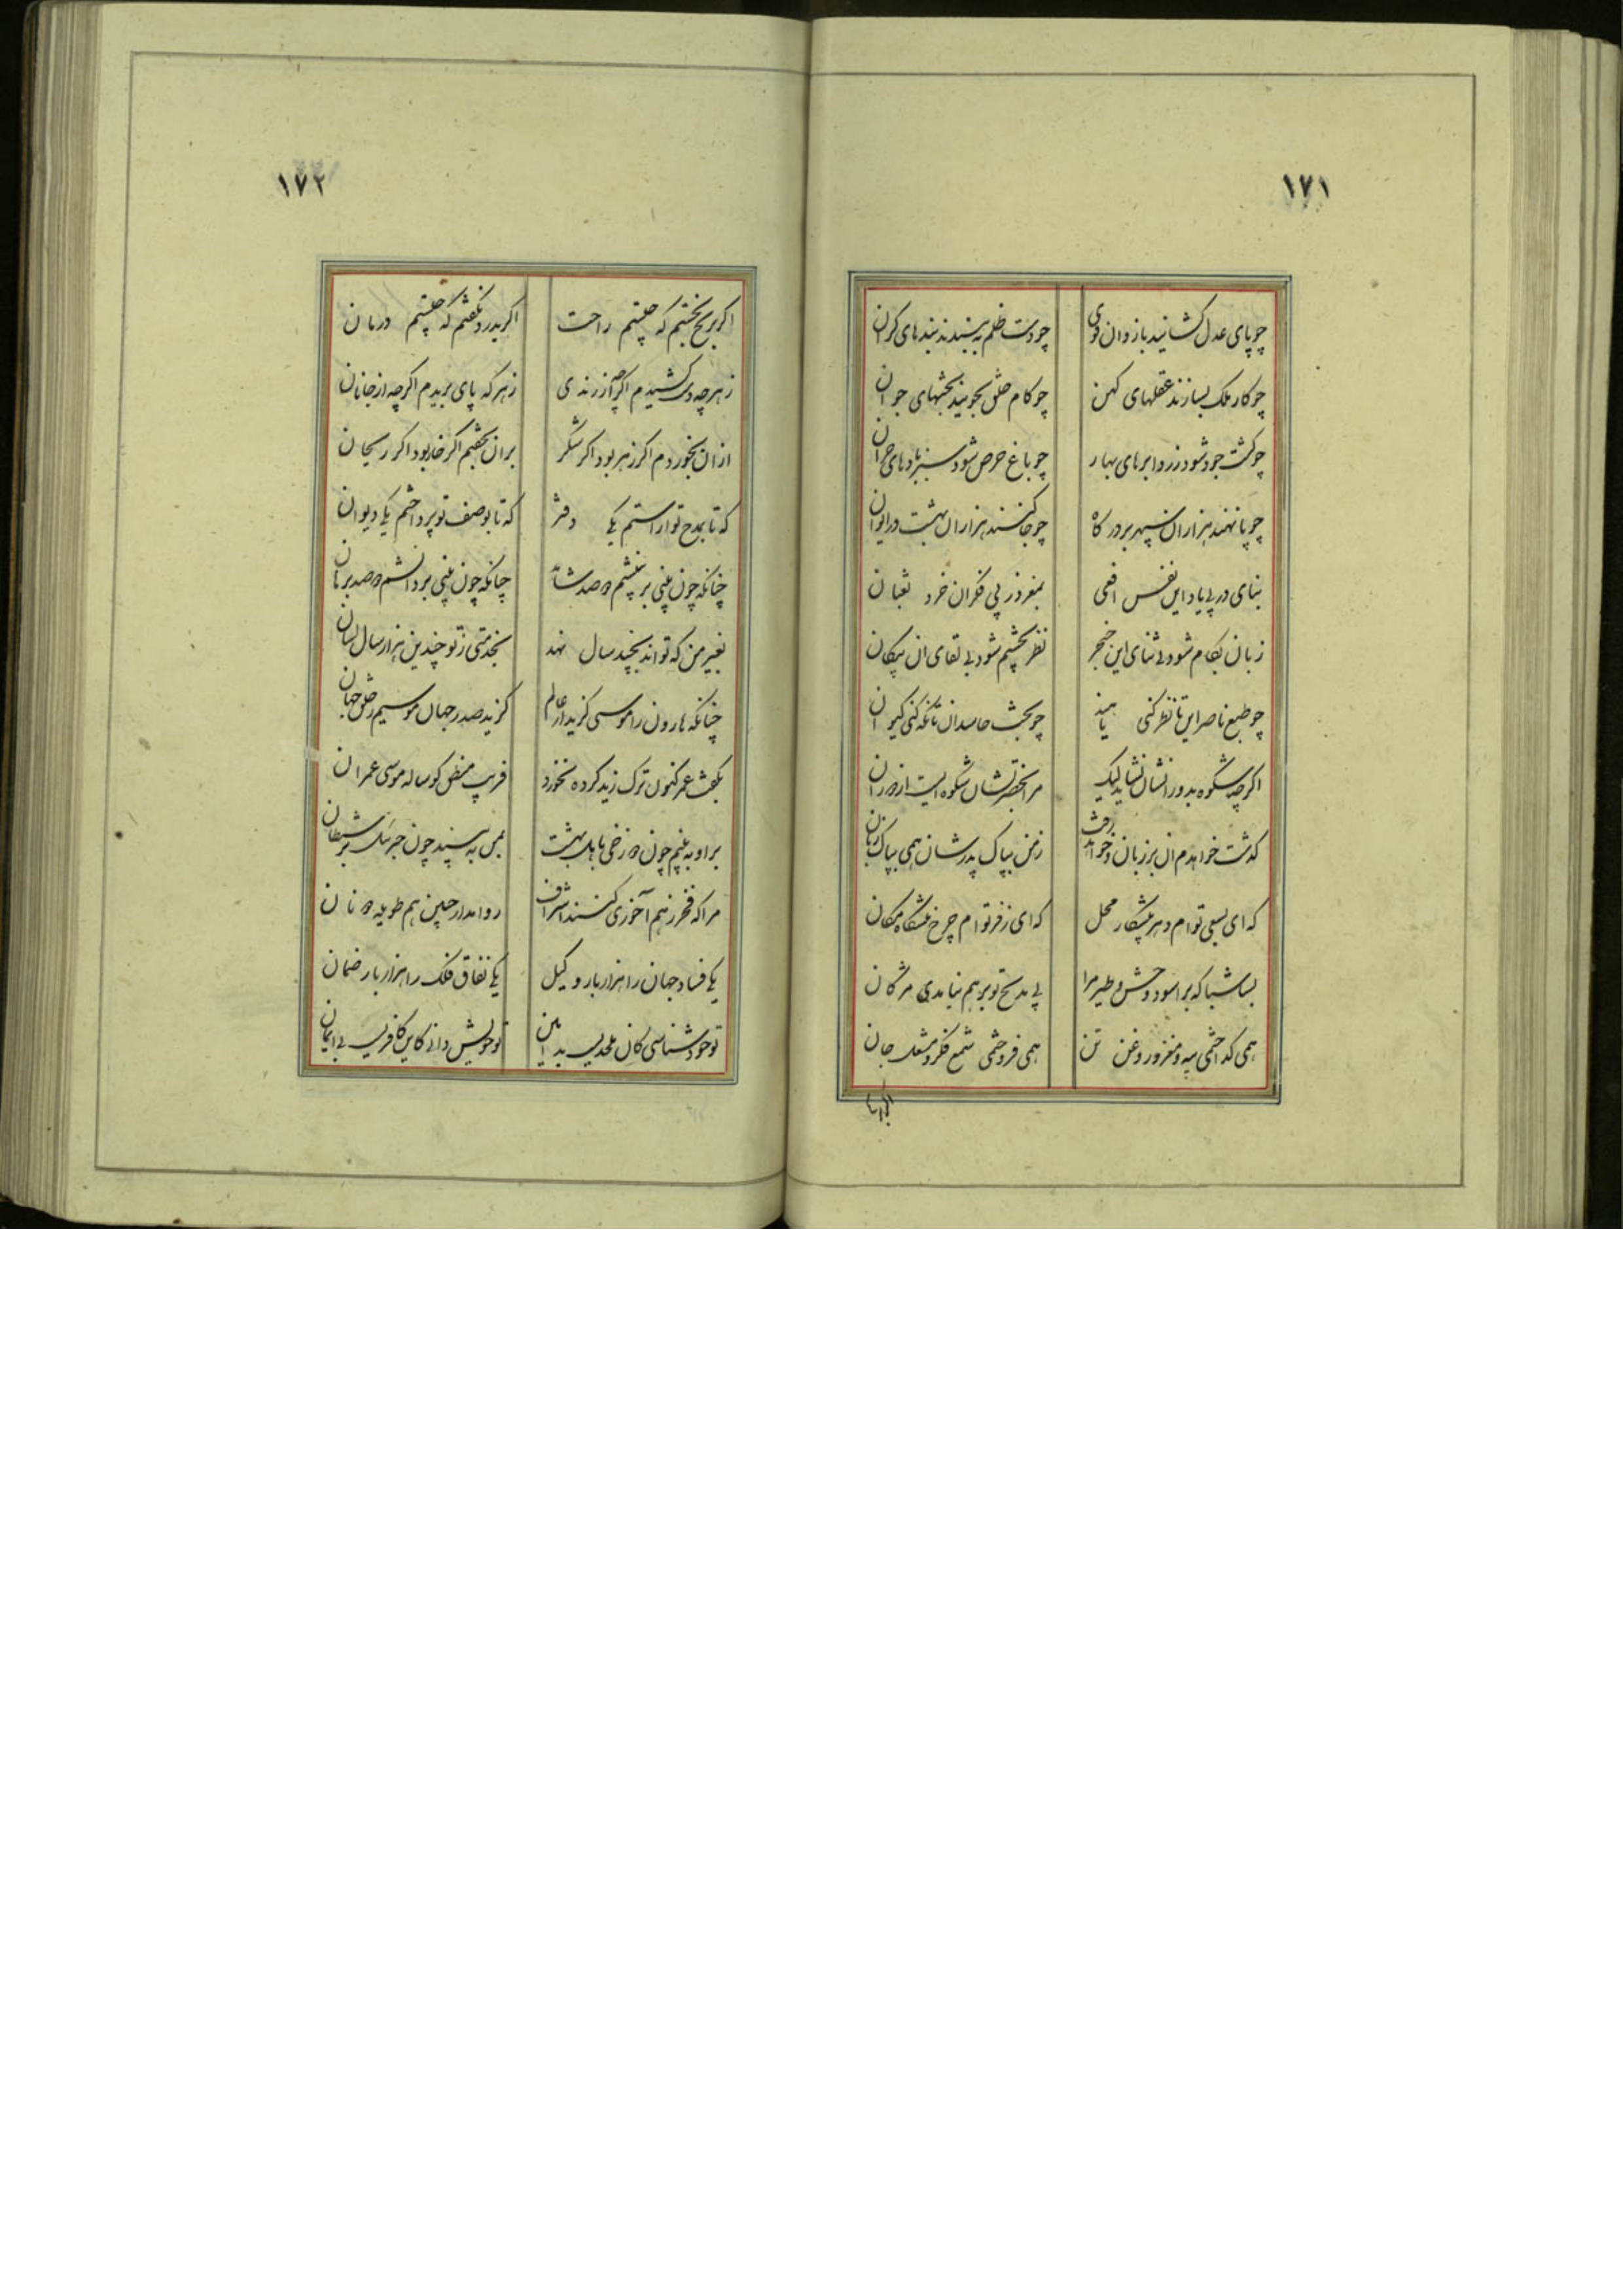 ١٧١
چو پای عدل کشانید بازوان قوی
چو دست ظلم به بندند بندهای کران
چو کار ملک بسازند عقلهای کهن
چو کام خلق بجویند بختهای جوان
چو کشت جود شود زرد ابرهای بهار
چو باغ حرص شود سبز بادهای خزان
چو پا نهند هزاران سپهر بر درکاه
چو جا کنند هزاران بهشت در ایوان
بنای در پی یاد این نفس افعی
بمغز در پی فکر آن خرد ثعبان
زبان بکام شود بی ثنای این خنجر
نظر بچشم شود بی لقای آن پیکان
چو طبع ناصر این تا نظر کنی
چو بخت حاسد آن تا نکه کنی کیوان
اکرچه شکوه بدور انشان نشاید لیک
مرا بحضرتشان شکوه ایست از دوران
کذشت خواهدم ان بر زبان و خواهد رفت
ز من بپاک پدرشان همی بپاک زبان
که ای بسعی توام دهر پیشکار محل
که ای ز فر توام چرخ پیشکاه مکان
بسا شبا که براسود وحش و طیر مرا
پی مدیح تو بر هم نیامدی مژکان
همی کداختمی پیه و مغز و روغن تن
همی فروختمی شمع فکر و مشعل جان
١٧٢
اکر برنج بخفتم که جستیم راحت
اکر بدرد نکفتم که جستیم درمان
ز هرچه دست کشیدم اکرچه از زندی
ز هرکه پای بریدم اکرچه از جانان
از ان بخوردم اکر زهر بود اکر شکر
بر ان بخفتم اکر خار بود اکر ریحان
که تا بمدح تو اراستم یکی دفتر
که تا بوصف تو پرداختم یکی دیوان
چنانکه چون بینی بر نبشتم دو صد
چنانکه چون بینی بر دانشم دو صد برهان
بغیر من که تواند بچند سال نهد
بخدمتی ز تو چندین هزار سال لسان
چنانکه هارون را موسی کزید از عالم
کزید صدر جهان موسیم ز خلق جهان
بکفت عمر کنون ترک زید کرده نخورد
فریب منطق کوساله موسی عمران
بر او به بینم چون دوزخی باهل بهشت
بمن به بیند چون جبرئیل بر شیطان
مرا که فخر ز هم آخوری کنند اشراف
روا مدار چنین هم طویله دو نان
یکی فساد جهان را هزار بار وکیل
یکی نفاق فلک را هزار بار ضمان
تو خود شناسی کان ملحدیست بد آیین
تو خویش دانی کاین کافریست بی ایمان